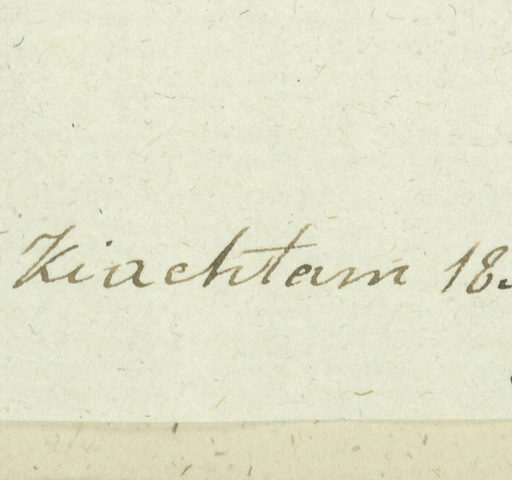 Kiachtam 18